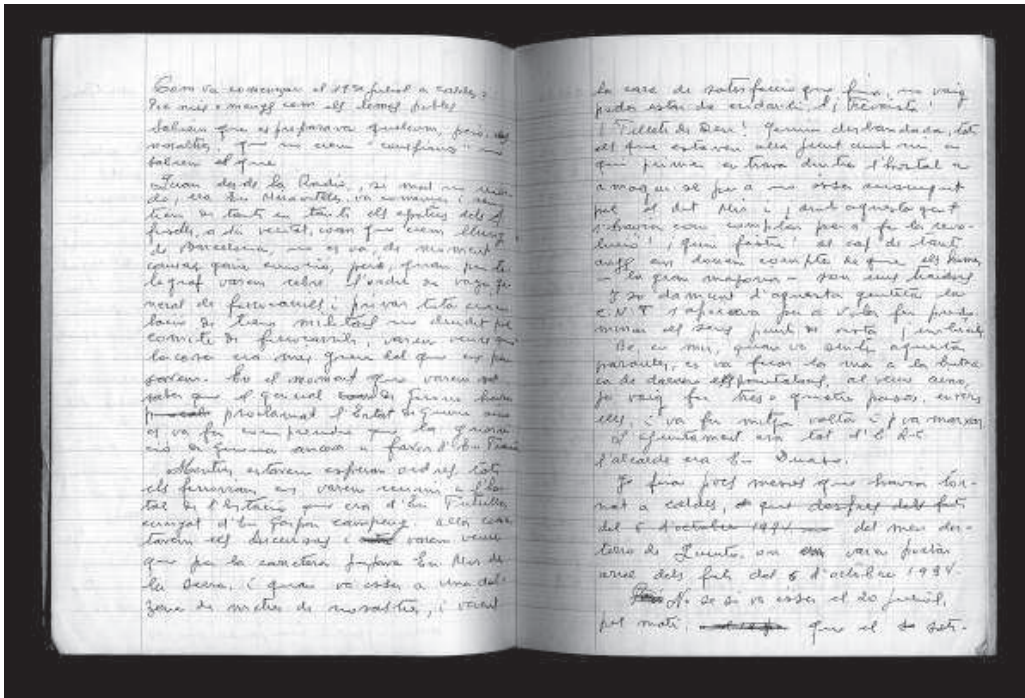 Com va començar el 19 de juliol a Caldes?
Poc més o menys com els demés pobles
Sabiem que es preparava quelcom, però,
nosaltres, que no eren "confianç"
sabien el que.
Quan des de la Radio, si mal no
do, era En Miravitlles, va comença i sen
tiem de tant en tant els epitets dels
a dir veritat, com que eren lluny
de Barcelona, no es va, de moment
causar gaire emoció, però, quan per te
legraf varem rebre. L'ordre de vaga ge
neral de ferrocarrils i privar tota circu
lació de trens militars no dirigit pel
comite de ferrocarrils, varem veure que
la cosa era mes greu del que ens pen
savem. En el moment que varem
saber que el general havia
proclamat l'Estat de Guerra ens
es va fer comprendre que la guarni
ció de Girona anava a favor d'En Franco
Mentres estavem esperan ordres tots
els ferroviaris ens varem reunir a l'ho
tal de l'Estació que era d'En
cunyat d'En Gaspar Camps, alla comen
tavem els successos i varem veure
que per la carretera pujava En Mir de
la Serra, i quan va esser a una dot
zena de metres de nosaltres, i veient
la cara de satisfacció que feia, no vaig
poder estar de cridar-li, ¡Trevoista!
¡Fillets de Deu! Quina desbandada, tots
els que estaven alla junt amb mi, a
qui primer entrava dintre l'hostal a
amagar-se per a no esser
pel dit Mir i, ¡amb aquesta gent
s'havia com complar per a fer la revo
lució!, ¡quin fastic! al cap de tants
anys ens donem compte de que els homes
- la gran majoria - son uns traidors
I so damunt d'aquesta la
C.N.T. s'apoiava per a voler fer predo
minar els seus punts de vista,
Be, en Mir, quan va sentir aquestes
paraules, es va ficar la ma a la butxa
ca de darrera al veure aixo,
jo vaig fer tres o quatre pases, envers
ell, i va fer mitja volta i va marxar
L'ajuntament era tot d'E.R.C
l'alcalde era En
Jo feia pocs mesos que havia tor
nat a Caldes, que desfres dels fets
del 6 d'octubre 1934 del meu des-
terro de Quinto, on varen portar
arrel dels fets del 6 d'octubre 1934.
No se si va esser el 20 juliol,
pel mati, que el set-